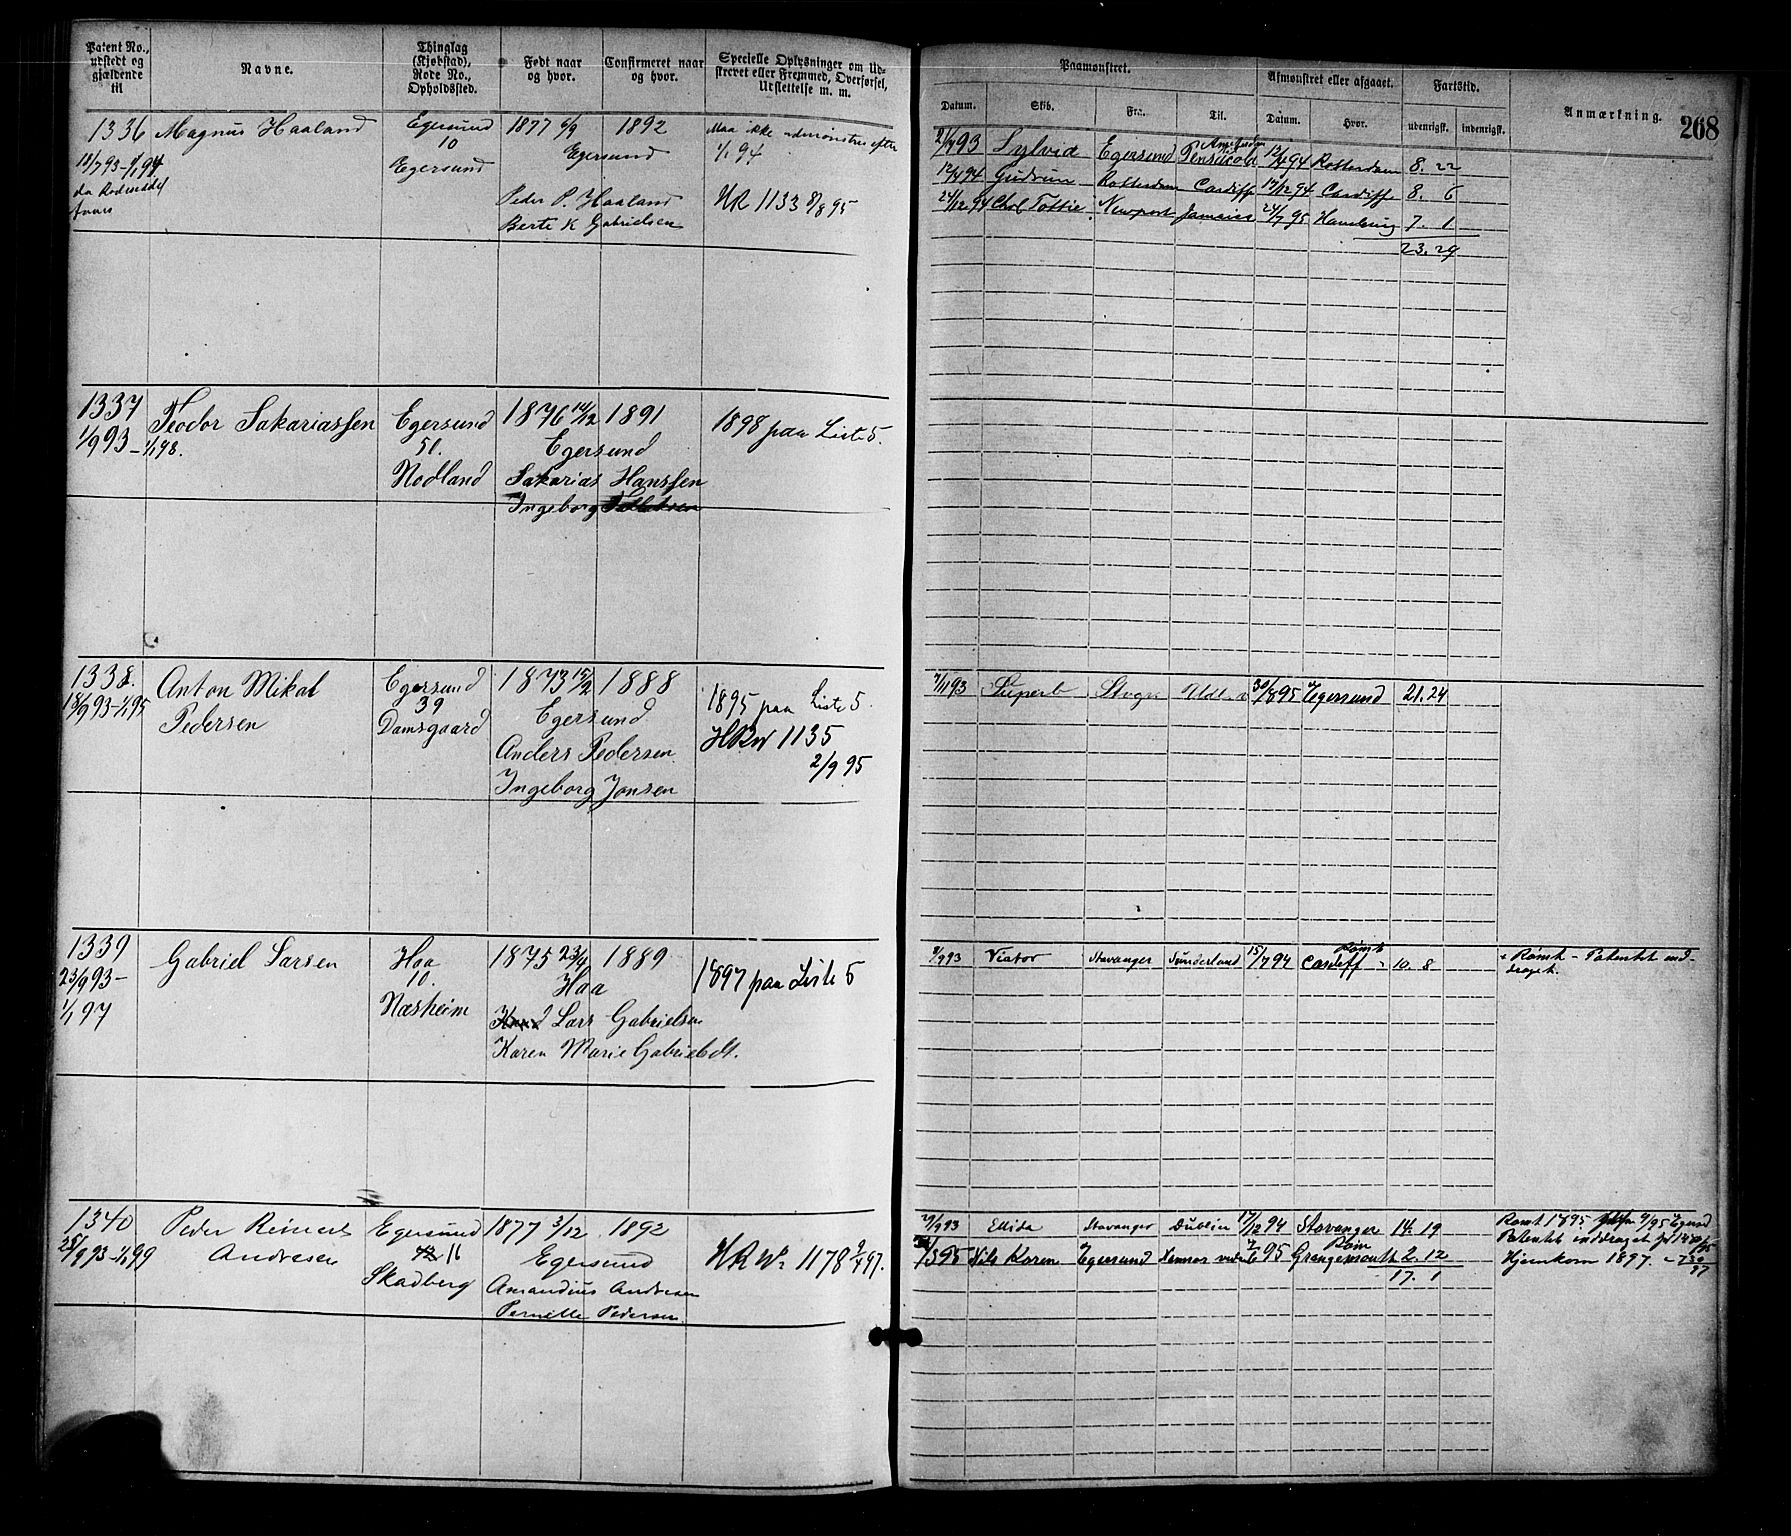 Patent No., udstedt og gjældende til
Navne.
Thinglag (Kjøbstad), Rode No., Opholdssted.
Født naar og hvor.
Confirmeret naar og hvor.
Specielle Oplysninger om Udskrevet eller Fremmed, Overførsel, Udslettelse m. m.
Paamønstret.
Datum.
Skib.
Fra.
Til.
Afmønstret eller afgaaet.
Datum.
Hvor.
Fartstid.
udenrigsk.
indenrigsk.
Anmærkning.
268
1336 Magnus Haaland Egersund 1877 6/9 1892 Maa ikke udmønstres efter
18/7 93 - 1/1 94 10 Egersund 1/1 94
Egersund
Peder P. Haaland HR 1133 8/8 95
Berte K Gabrielsen
93 Sylvia Egersund Pensacola 94 Rotterdam 8. 22
94 Gudrun Rotterdam Cardiff 17/12 94 Cardiff 8. 6
24/12 94 Newport Jamaica 24/7 95 Hamburg 7. 1
23. 29
1337 Teodor Sakariassen Egersund 1876 14/12 1891 1898 paa Liste 5.
1/9 93 - 1/1 98. 51. Egersund
Nodland Sakarias Hanssen
Ingeborg
1338. Anton Mikal Pedersen Egersund 1873 15/2 1888 1895 paa Liste 5.
18/9 93 - 1/1 95 39 Egersund HR No 1135
Damsgaard Anders Pedersen 2/9 95
Ingeborg Jonsen
7/11 93 Superb Stvgr 30/8 95 Egersund 21. 24
1339 Gabriel Larsen Haa 1875 23/4 1889 1897 paa Liste 5
23/9 93 - 10. Haa
1/1 97 Næsheim Lars Gabrielsen
Karen Marie Gabrielsdt.
9/9 93 Viator Stavanger Sunderland 15/7 94 Rømt Cardiff 10. 8 Rømt - Patentet inddraget.
1340 Peder Reinert Andresen Egersund 1877 3/12 1892 HR No 1178 9/4 97.
25/9 93 - 1/1 99 11 Egersund
Skadberg Amandius Andresen
Pernille Pedersen
29/9 93 Ellida Stavanger Dublin 17/12 94 Stavanger 14. 19 Rømt 1895
95 Nils Karen Egersund 95 Grangemouth Røm 2. 12 Patentet inddraget
17. 1 Hjemkom 1897.